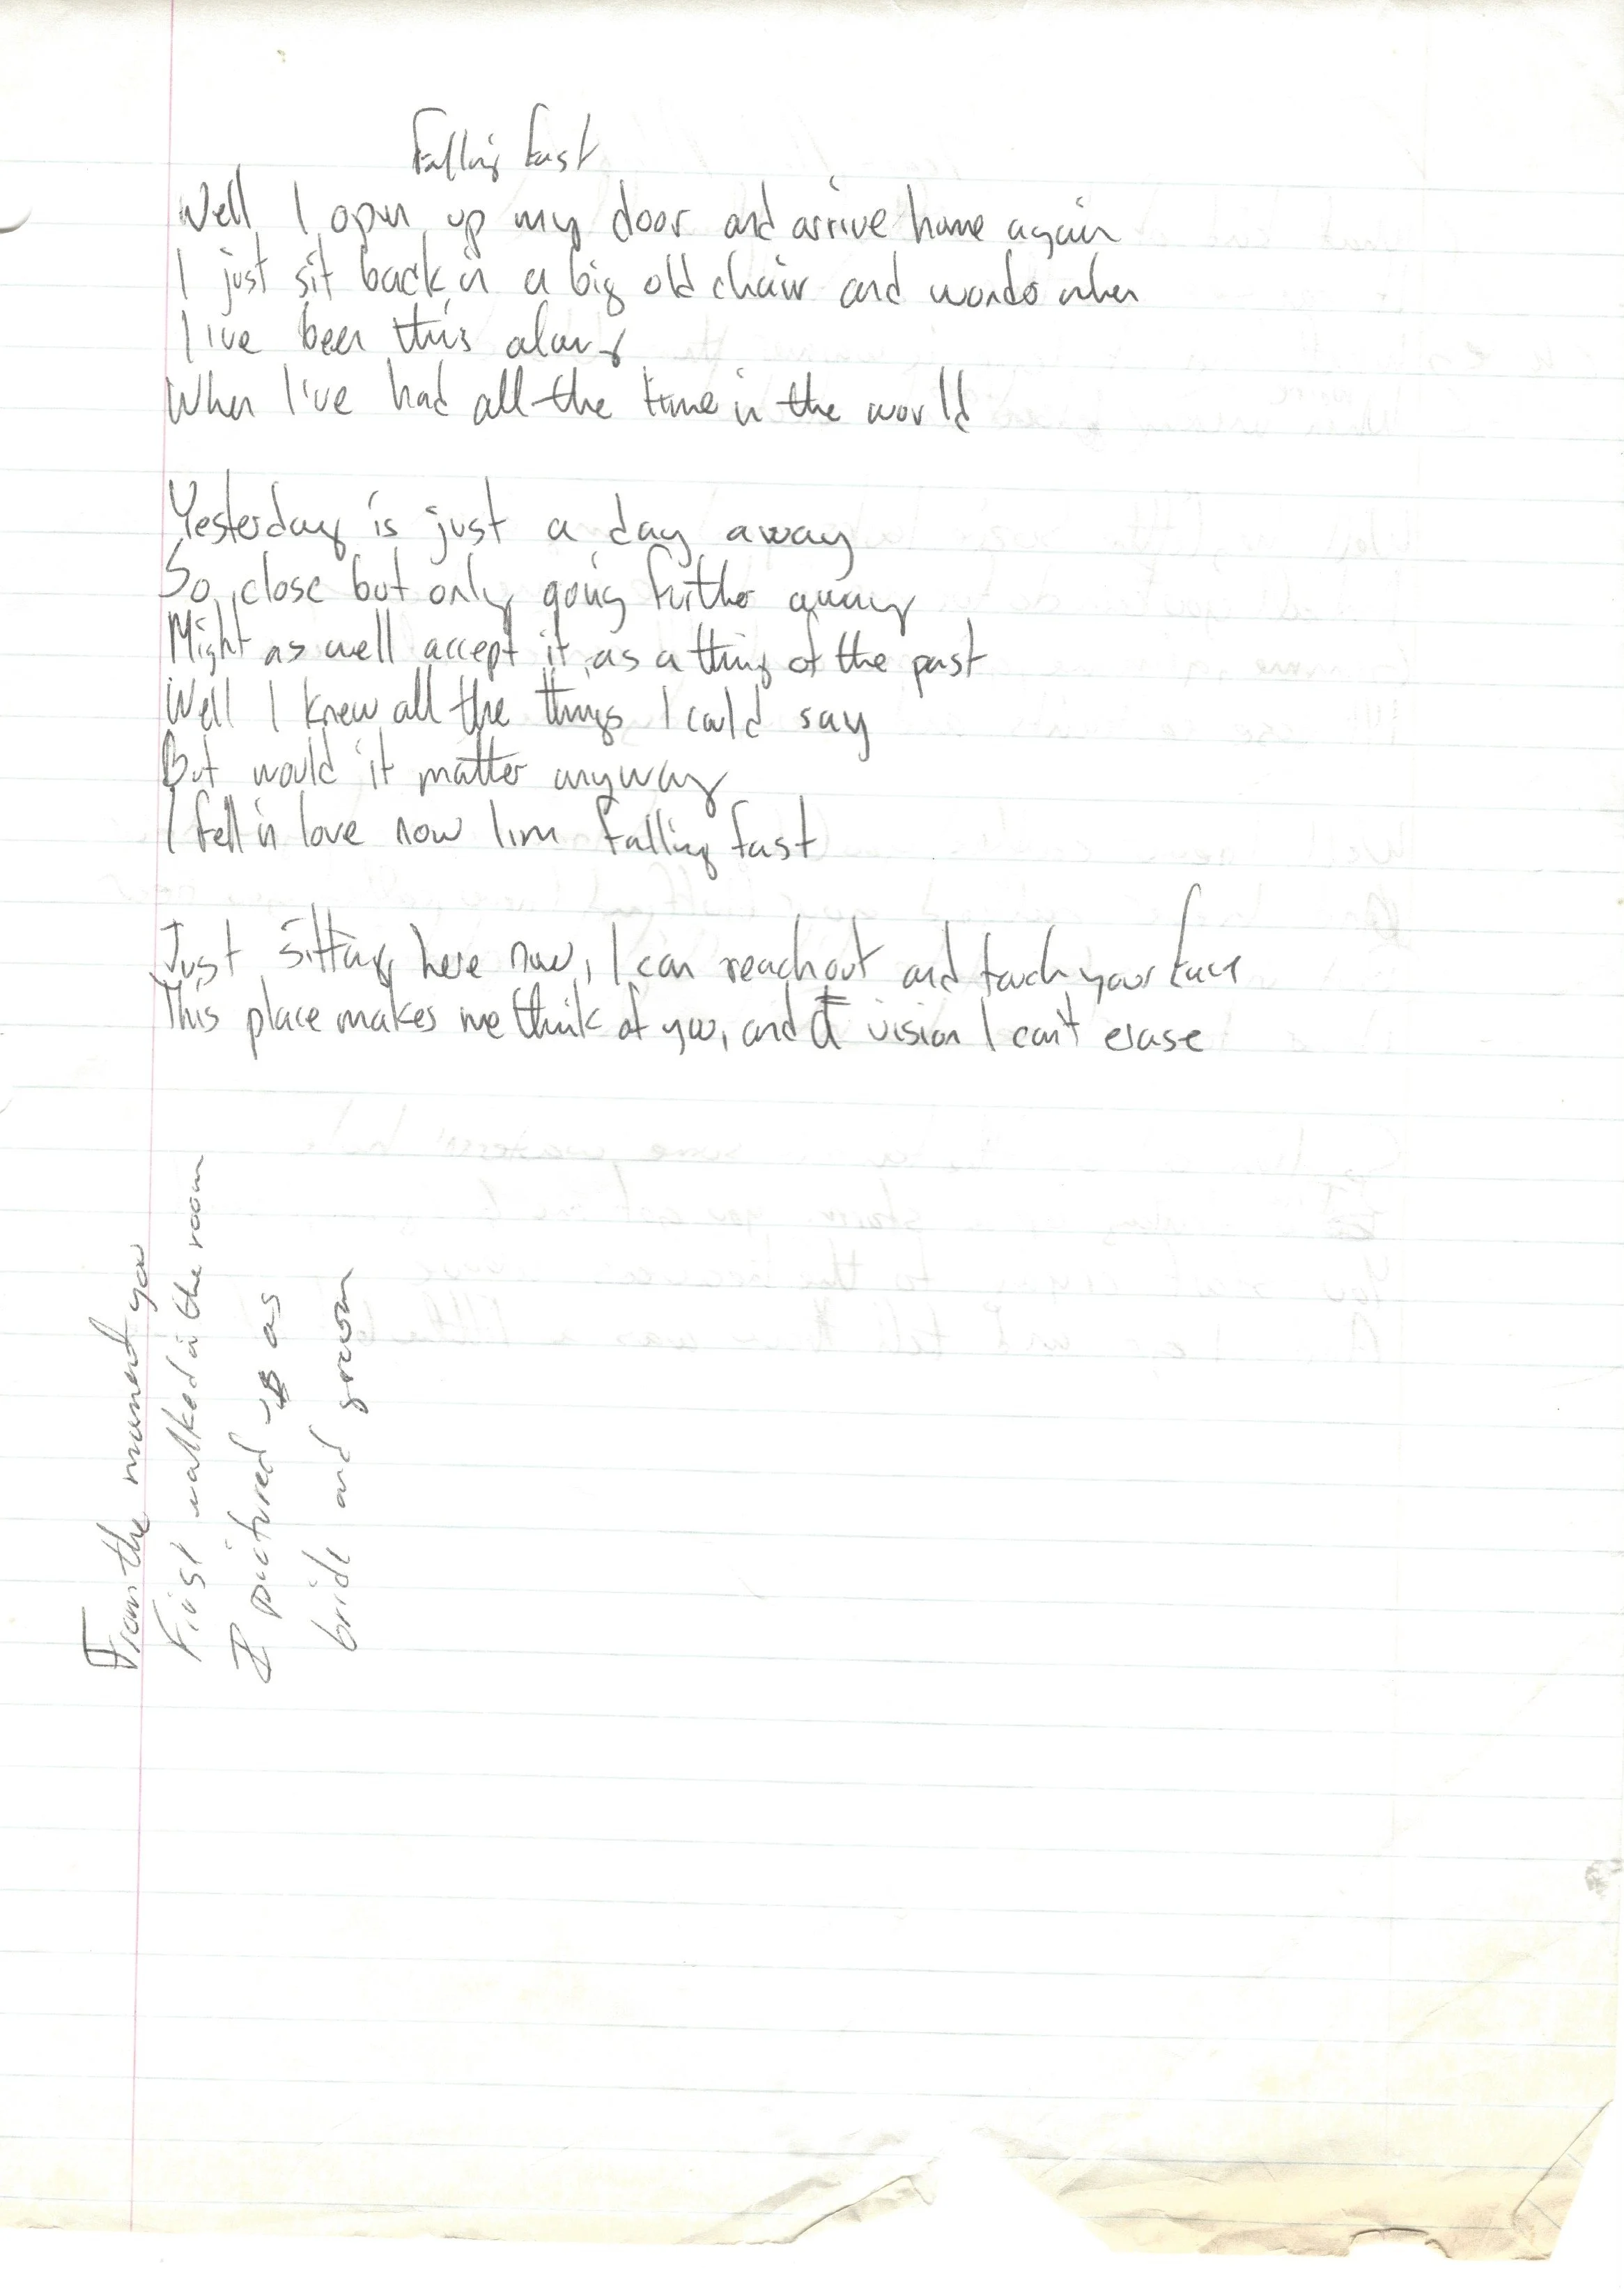 Falling Fast
Well I open up my door and arrive home again
I just sit back in a big old chair and wonder when
I've been this along
When I've had all the time in the world
Yesterday is just a day away
So close but only going further away
Might as well accept it as a thing of the past
Well I knew all the things I could say
But would it matter anyway
I fell in love now I'm falling fast
Just sitting here now, I can reach out and touch your face
This place makes me think of you, and vision I can't erase
From the moment you
First walked in the room
I pictured us as
bride and groom